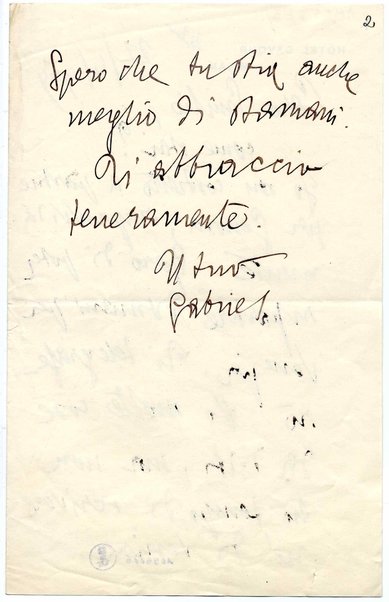 2
Spero che tu stia anche
meglio di stamani.
Ti abbraccio
teneramente.
Il tuo
Gabriel